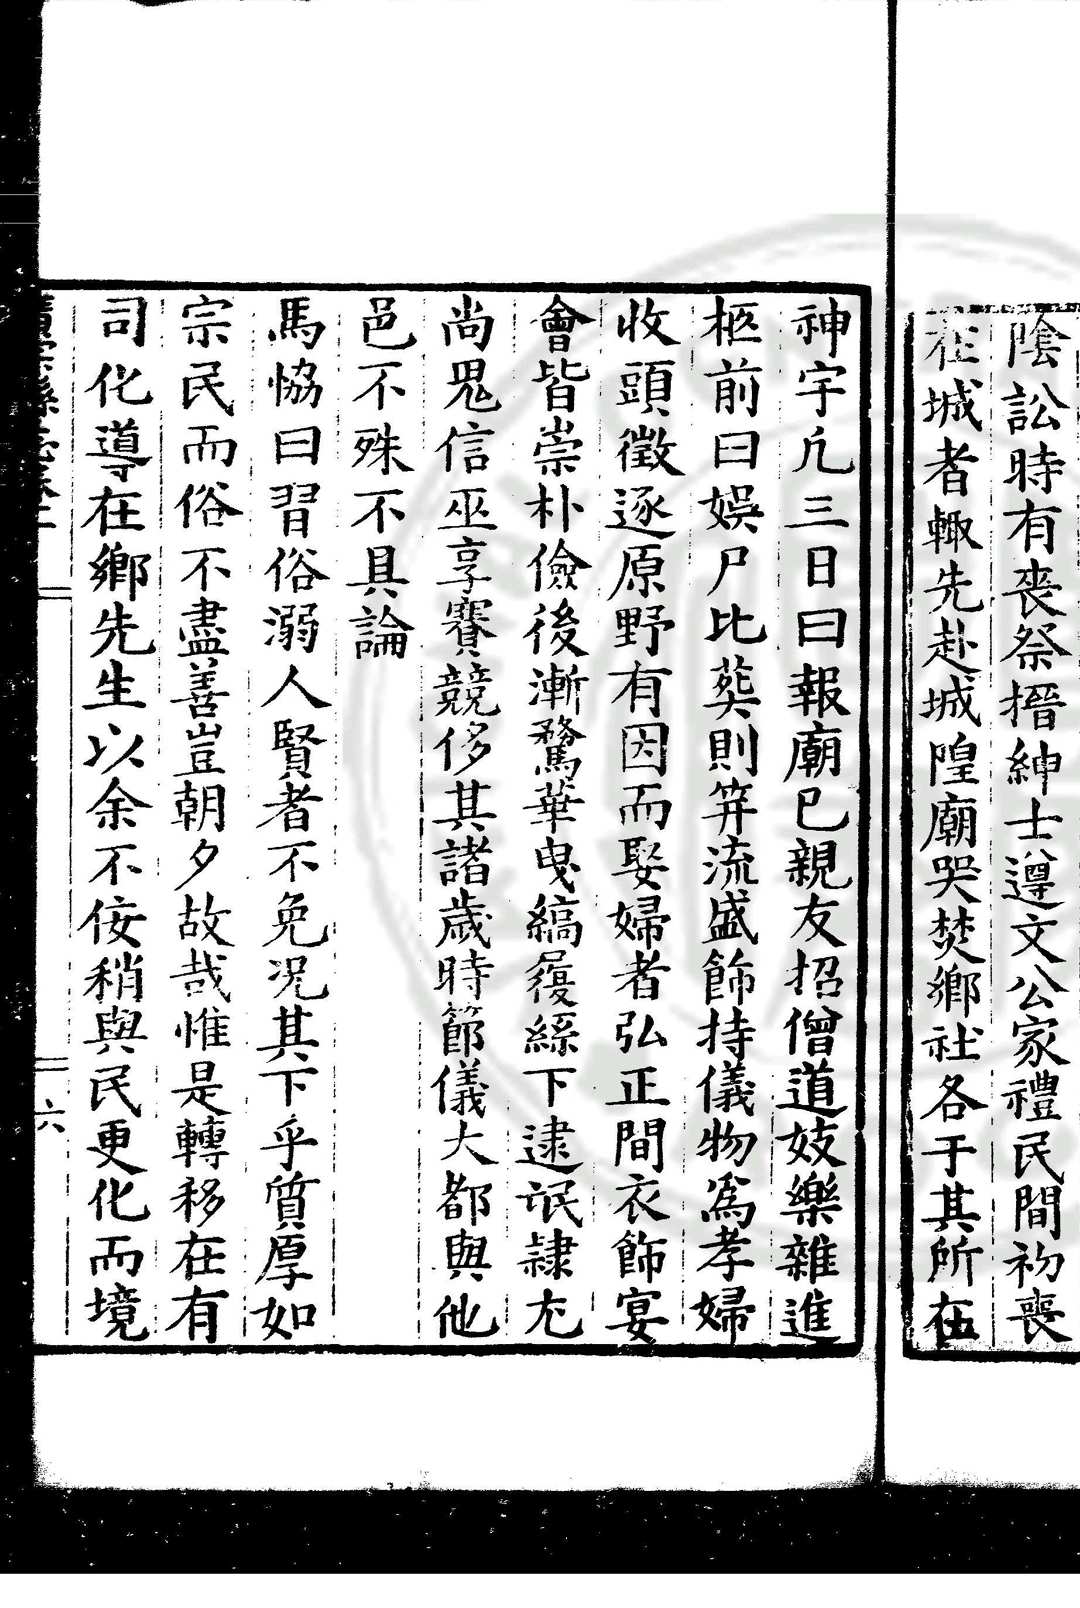 陰訟時有喪祭搢紳士遵文公家禮民間初喪
在城者輙先赴城隍廟哭焚鄉社各于其所在
神宇凢三日曰報廟巳親友招僧道妓樂雜進
柩前曰娛尸比葬則笄流盛飾持儀物爲孝婦
收頭徵逐原野有因而娶婦者弘正間衣飾宴
會皆崇朴儉後漸騖華曳縞履絲下逮氓隸尢
尚鬼信巫享賽競侈其諸歲時節儀大都與他
邑不殊不具論
馬恊曰習俗溺人賢者不免况其下乎質厚如
宗民而俗不盡善豈朝夕故哉惟是轉移在有
司化導在鄉先生以余不佞稍與民更化而境
縣志卷二
六